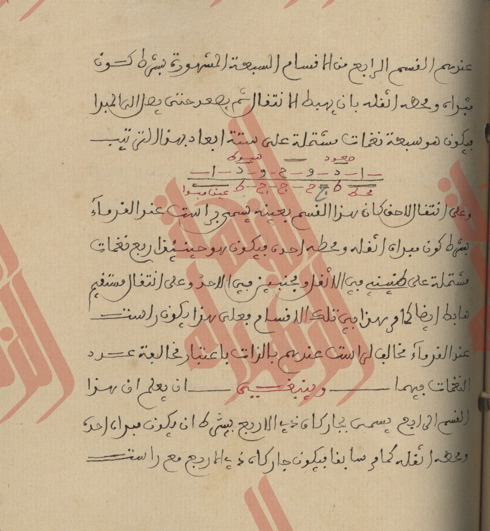 عندهم القسم الرابع من الاقسام السبعة المشهورة بشرط كون
مبداه ومحطه اثقله بان يهبط الانتقال ثم يصعد حتى يصل الى المبدا
فيكون هو سبعة نغمات مشتملة على ستة ابعاد بهذا الترتيب
صعود هبوط
ا د و ح و د ا
محطة ط ج ج ج ج ط
وعلى انتقال لاحق كان هذا القسم بعينه يسمى براست عند القدماء
بشرط كون مبداه اثقله ومحطه احده فيكون هو حينئذ اربع نغمات
مشتملة على طنينية في الاثقل ومجنبين في الاحد وعلى انتقال مستقيم
هابط ايضا كما مر بهذا في تلك الاقسام فعلى هذا يكون راست
عند القدماء مخالف لراست عندهم بالذات باعتبار مخالفة عدد
النغمات فيهما وينبغي ان يعلم ان هذا
القسم الرابع يسمى بچاركاه ذي الاربع بشرط ان يكون مبداه احده
ومحطه اثقله كما مر سابقا فيكون چاركاه ذي الاربع مع راست